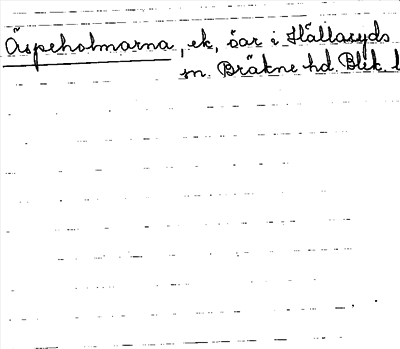 Äspeholmarna, ek, öar i Hällaryds
sn Bräkne hd Blek. l